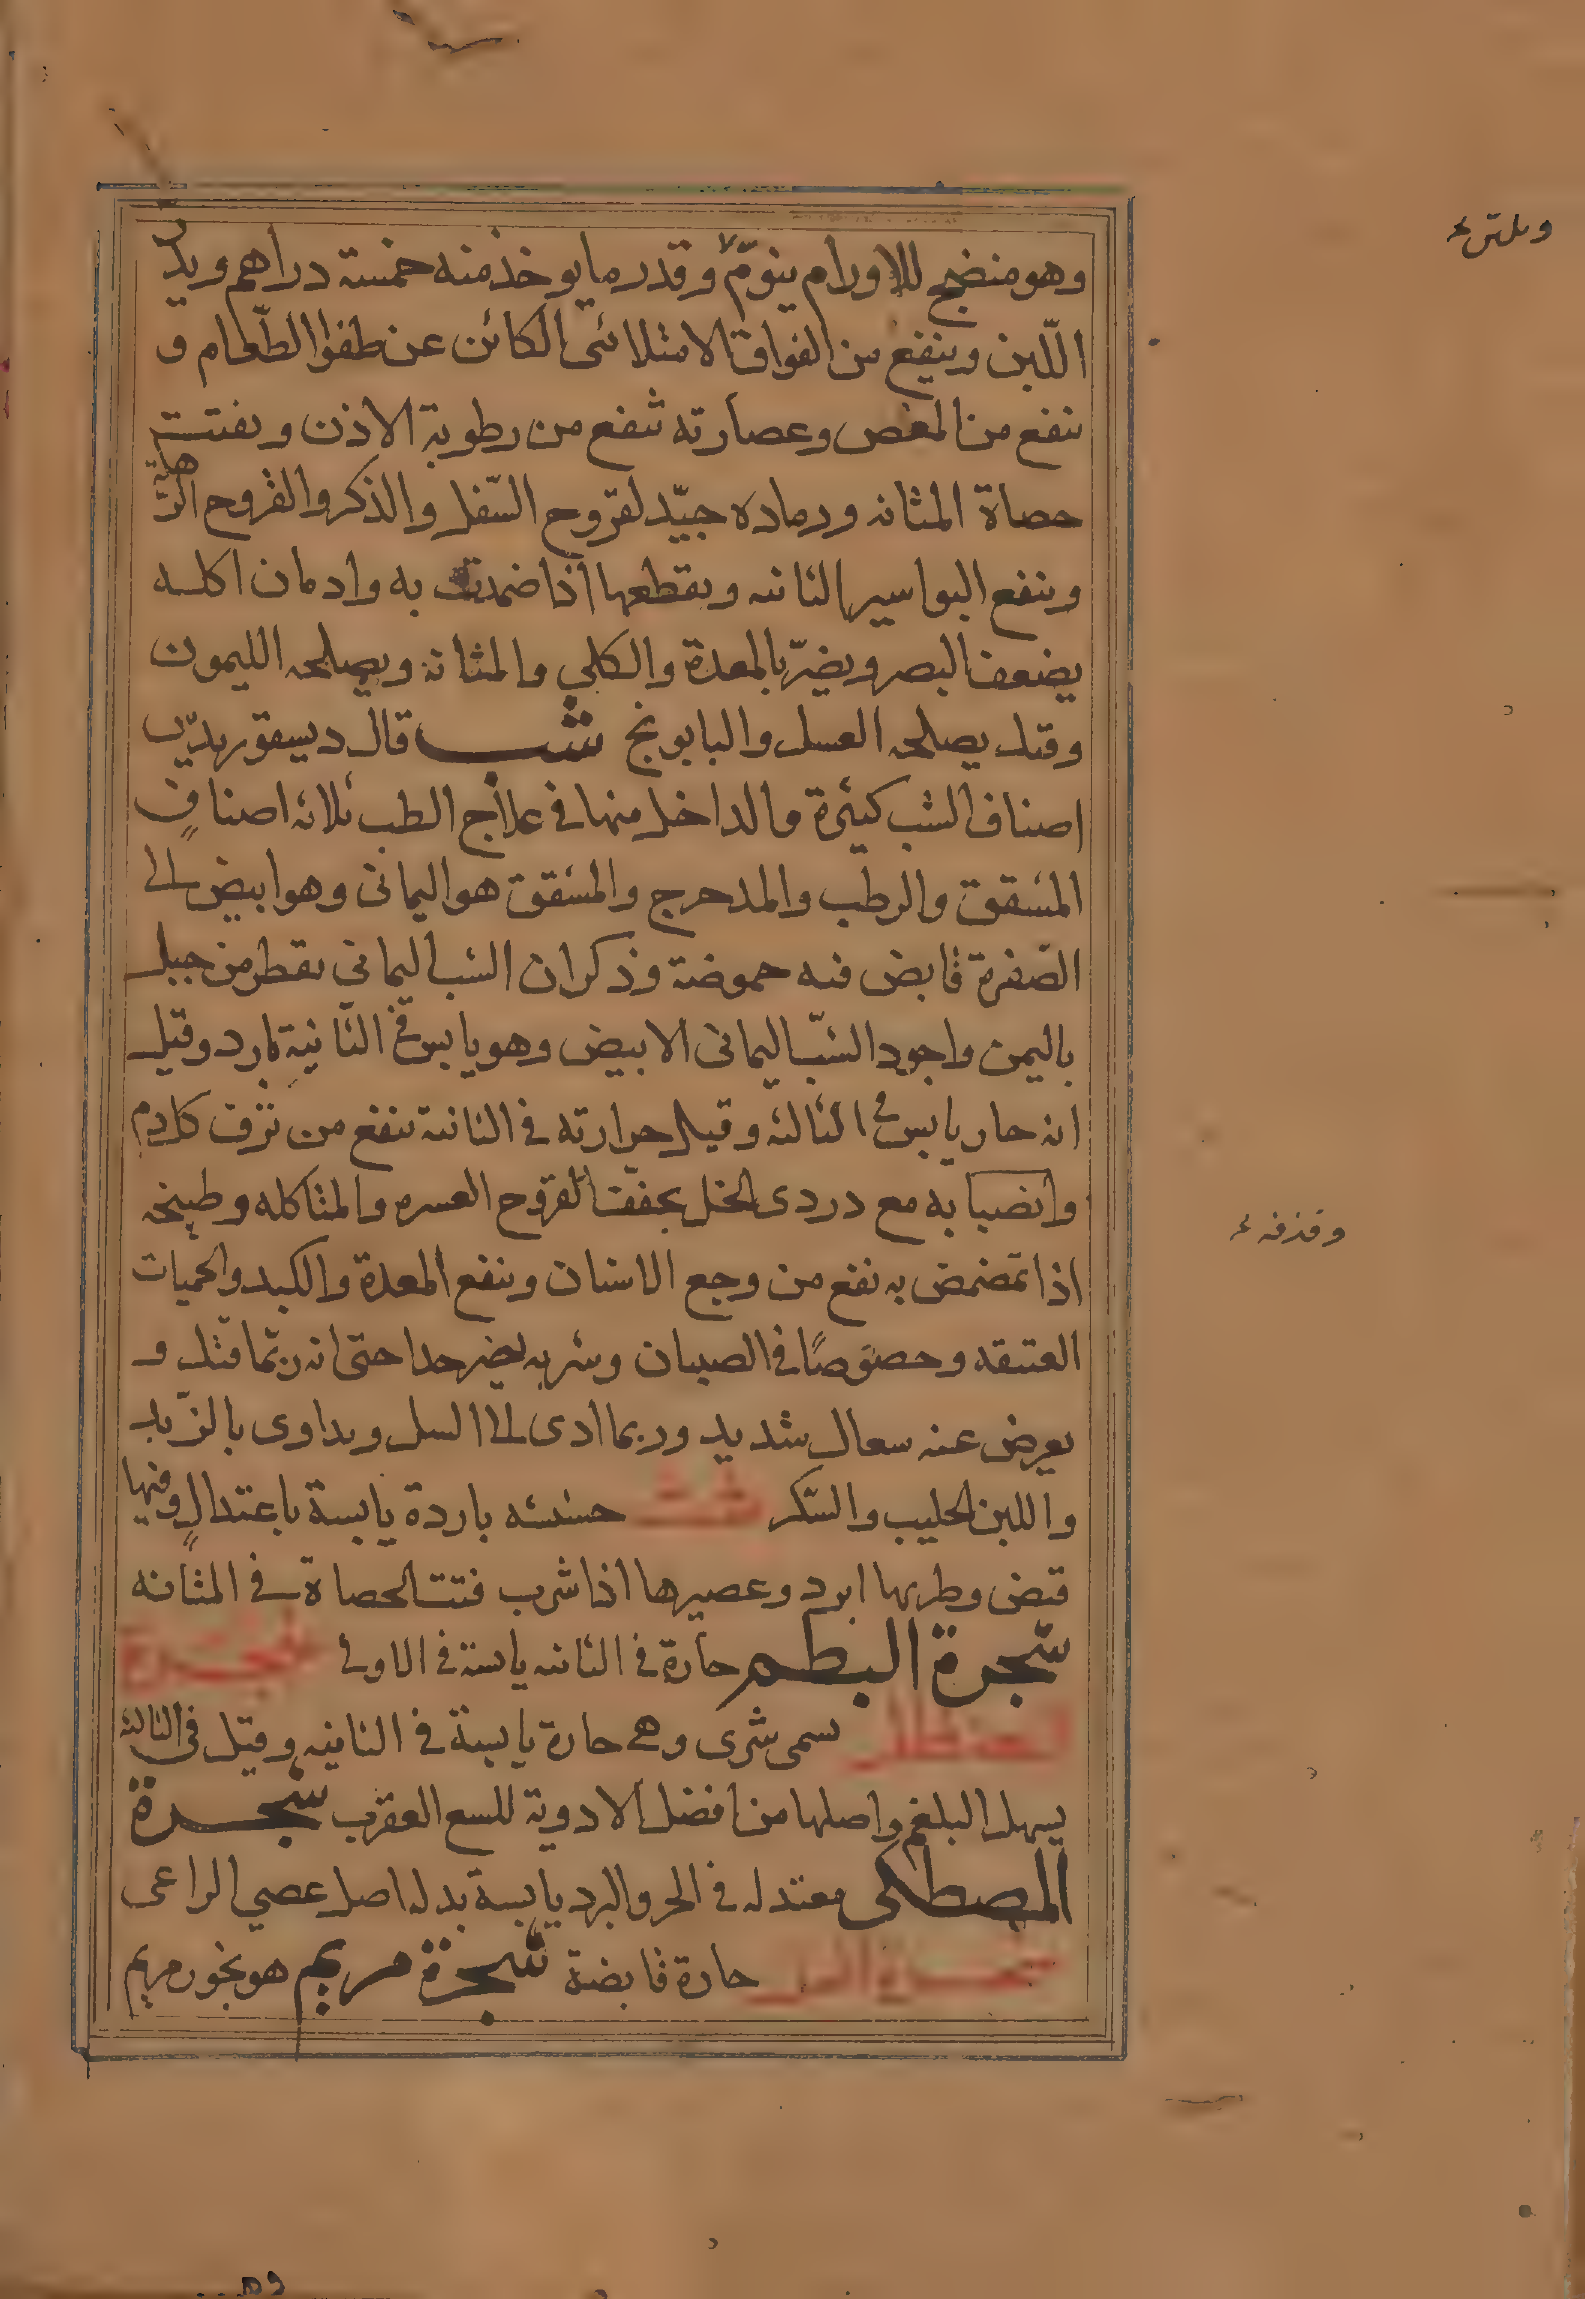 وهو منضج للاورام ينوّم وقدر ما يوخذ منه خمسة دراهم ويدرّ
اللّبن وينفع من الفواق الامتلائى الكائن عن طفو الطّعام و
ينفع من المغص وعصارته تنفع من رطوبة الاذن ويفتت
حصاة المثانه ورماده جيّد لقروح السّفل والذكر والقروح الرّهلة
وينفع البواسير الناتئه ويقطعها اذا ضمدت به وادمان اكله
يضعف البصر ويضرّ بالمعدة والكلى والمثانة ويصلحه الليمون
وقيل يصلحه العسل والبابونج شب قال ديسقوريدس
اصناف الشب كثيرة والداخل منها فى علاج الطب ثلاثه اصنافٍ
المشقق والرطب والمدحرج والمشقق هو اليمانى وهو ابيض الى
الصّفرة قابض فيه حموضة وذكر ان الشب اليمانى يقطر من جبل
باليمن واجود الشبّ اليمانى الابيض وهو يابس فى الثّانية بارد وقيل
انه حار يابس فى الثالثه وقيل حرارته فى الثانية ينفع من نزف كل دم
وانصبابه مع دردى الخل يجفف القروح العسره والمتاكله وطبيخه
اذا تمضمض به نفع من وجع الاسنان وينفع المعدة والكبد والحميات
العتيقه وخصوصًا فى الصبيان وشربه يضر جدا حتى انه ربّما قتل و
يعرض عنه سعال شديد وربما ادى الى السل ويداوى بالزّبد
واللبن الحليب والسّكر حشيشه باردة يابسة باعتدالٍ وفيها
قبض وطريها ابرد وعصيرها اذا شرب فتت الحصاة فى المثانه
شجرة البطم حارة فى الثانيه يابسة فى الاولى شجرة
الحنظل تسمى شرى وهى حارة يابسة فى الثانيه وقيل فى الثالثه
يسهل البلغم واصلها من افضل الادوية للسع العقرب شجرة
المصطكى معتدله فى الحر والبرد يابسة بدله اصل عصى الراعى
شجرة حارة قابضة شجرة مريم هو بخور مريم
وقذفه